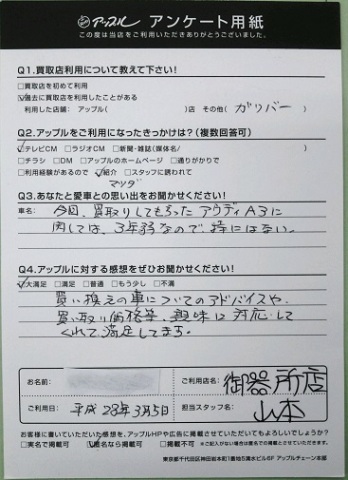 アップル アンケート用紙
この度は当店をご利用いただきありがとうございました。
Q1.買取店利用について教えて下さい!
□買取店を初めて利用
☑過去に買取店を利用したことがある
利用した店舗: アップル( )店 その他( ガリバー )
Q2.アップルをご利用になったきっかけは?(複数回答可)
☑テレビCM □ラジオCM □新聞・雑誌(媒体名/ )
□チラシ □DM □アップルのホームページ □通りがかりで
□利用経験があるので ☑紹介 □スタッフに誘われて
マツダ
Q3.あなたと愛車との思い出をお聞かせください!
車名: 今回、買取りしてもらった アウディA3に
関しては、3年弱なので、特にはない。
Q4.アップルに対する感想をぜひお聞かせください!
☑大満足 □満足 □普通 □もう少し □不満
買い換えの車についてのアドバイスや、
買い取り価格等、 に対応して
くれて満足してます。
お名前:
ご利用店名: 御器所店
ご利用日: 平成28年3月5日
担当スタッフ名: 山本
お客様に書いていただいた感想を、アップルHPや広告に掲載させていただいてもよろしいでしょうか?
□実名で掲載可 ☑匿名なら掲載可 □掲載不可 ※ご記入がない場合は匿名での掲載とさせていただきます。
東京都千代田区神田岩本町1番地5清水ビル6F アップルチェーン本部